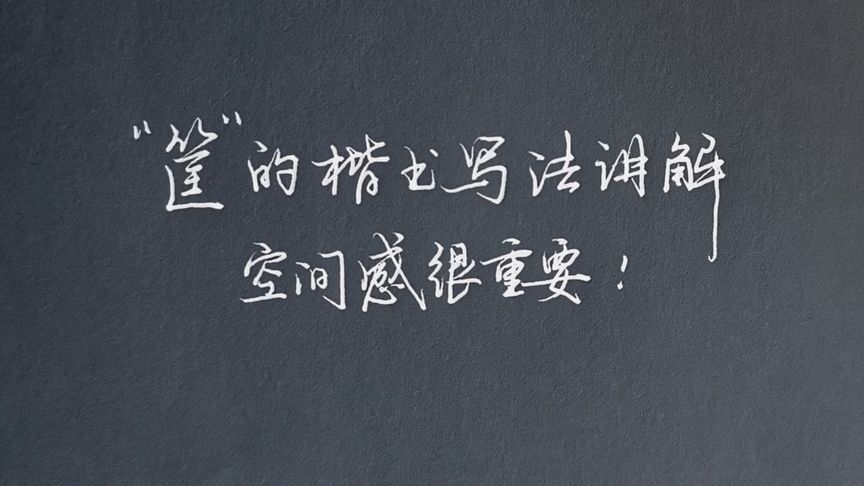 “筐”的楷书写法讲解
空间感很重要！